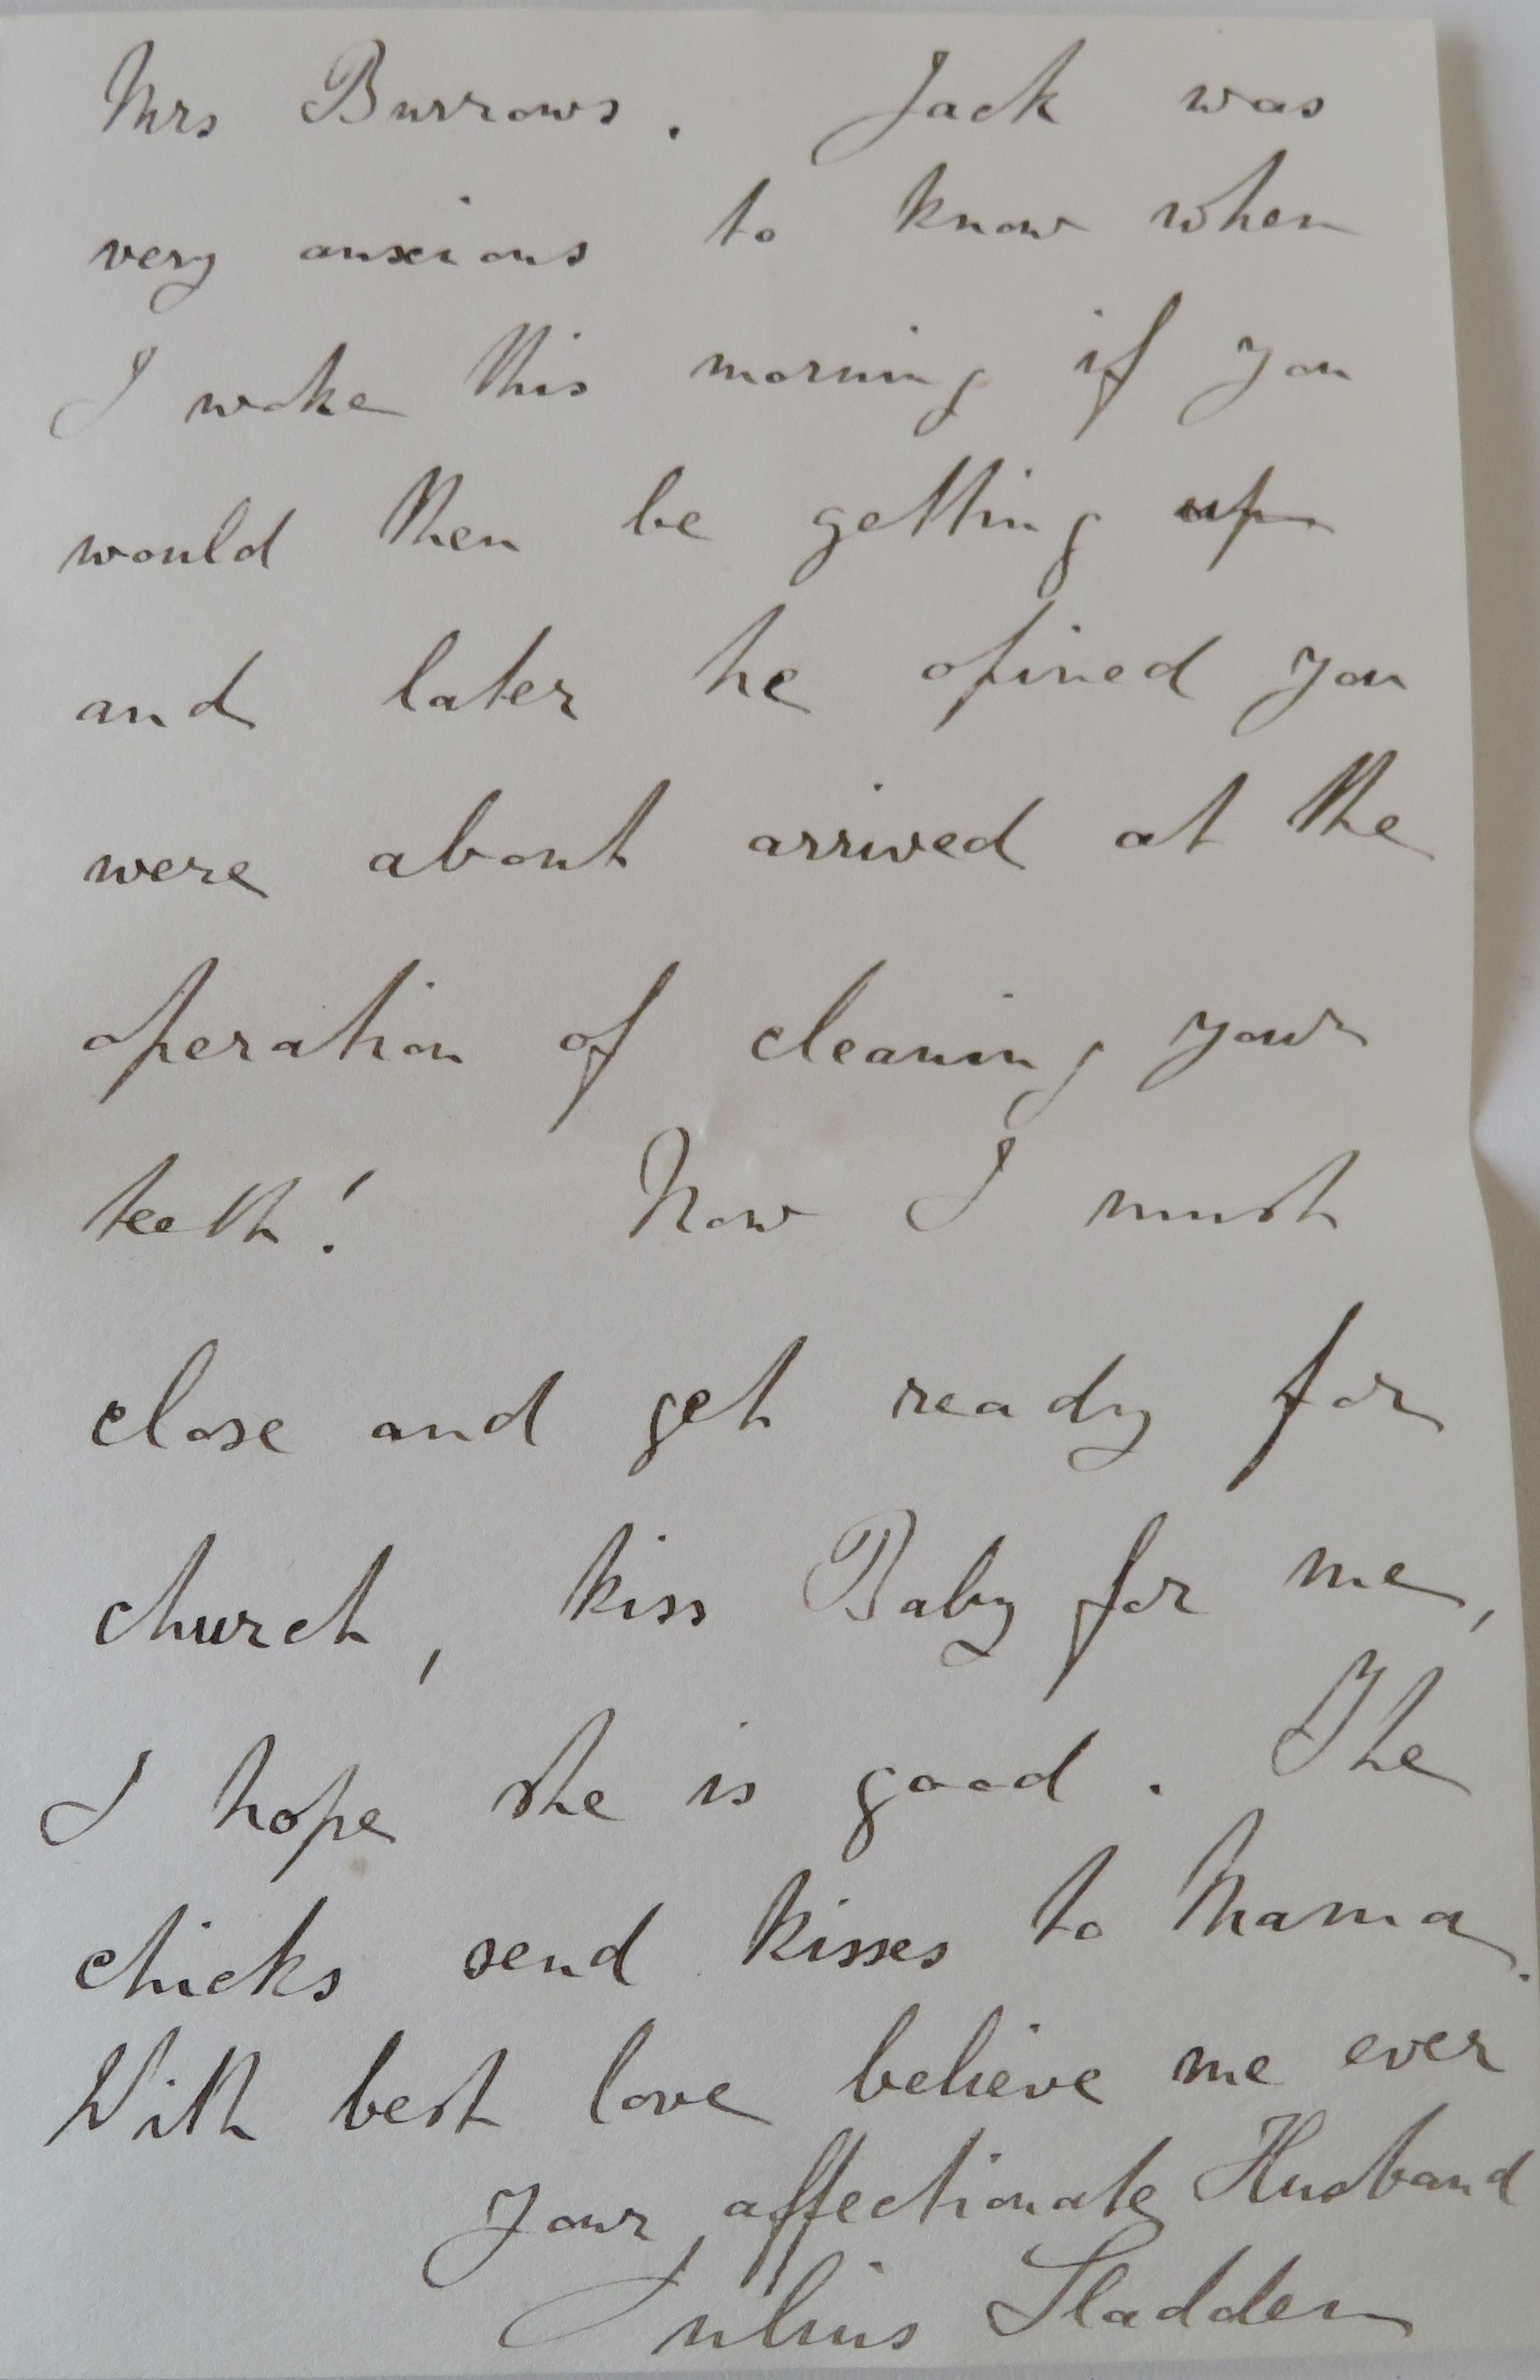 Mrs Burrows. Jack was
very anxious to know when
I woke this morning if you
would then be getting up
and later he opined you
were about arrived at the
operation of cleaning your
teeth! Now I must
close and get ready for
church, kiss Baby for me,
I hope she is good. The
chicks send kisses to Mama.
With best love believe me ever
Your affectionate Husband
Julius Sladden